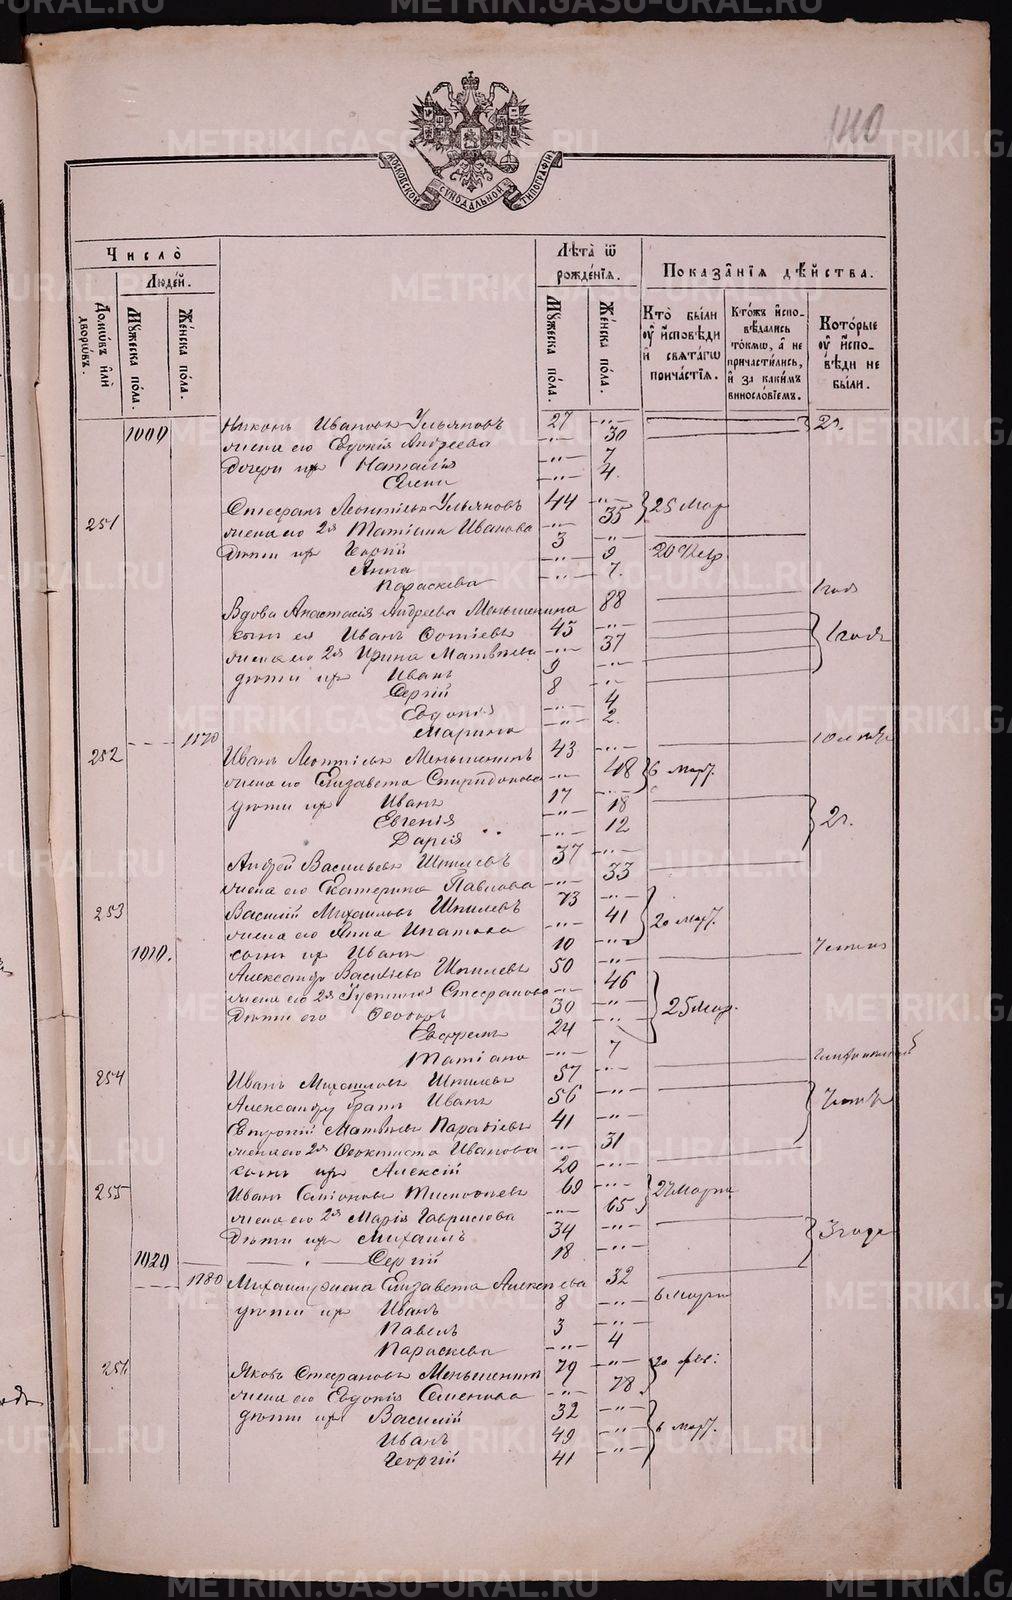 METRIKI.GASO-URAL.RU
140
МОСКОВСКОЙ СѴНОДАЛЬНОЙ ТИПОГРАФІИ
Число̀
Людей.
Домѡвъ и҆лѝ дворѡвъ.
Мꙋжеска по́ла.
Же́нска по́ла.
Лѣ́та ѿ рожде́нїѧ.
Мꙋжеска по́ла.
Же́нска по́ла.
Показа̑нїѧ дѣ́йства.
Кто̀ бы́ли оу҆ и҆сповѣди и҆ свѧта́гѡ прича́стїѧ.
Кто́жъ и҆спо-вѣдались то́кмѡ, а҆ не причасти́лись, и҆ за каки́мъ винослѡ́вїемъ.
Кото́рые оу҆ и҆спо-вѣди не бы́ли.
1009 Никонъ Ивановъ Ульяновъ 27 2 г.
жена его Евдокія Андреева 30
Дочери их Наталія 7
Елена 4
251 Стефанъ Леонтьевъ Ульяновъ 44 25 Мар
жена его 2я Татіана Иванова 35
Дѣти их Георгій 3
Анна 9 20 Февр.
Параскева 7
Вдова Анастасія Андреева Меньшенина 88 1 годъ
сынъ ея Иванъ Фотіевъ 45 1 годъ
жена его 2я Ирина Матвѣева 37
дѣти их Иванъ 9
Сергій 8
Евдокія 4
1170 Марина 2
252 Иванъ Леонтьевъ Меньшенинъ 43 6 март.
жена его Елизавета Спиридонова 48
дѣти их Иванъ 17 2 г.
Евгенія 18
Дарія 12
Андрей Васильевъ Шпилевъ 37
жена его Екатерина Павлова 33
253 Василій Михаиловъ Шпилевъ 73 20 март.
жена его Анна Ипатова 41
1010. сынъ их Иванъ 10
Александръ Васильевъ Шпилевъ 50 25 мар.
жена его 2я Устинія Стефанова 46
Дѣти его Ѳеодоръ 30
Ефремъ 24
Татіана 7
254 Иванъ Михаиловъ Шпилевъ 57
Александру братъ Иванъ 56
41
жена его 2я Ѳеоктиста Иванова 31
сынъ их Алексій 20
255 Иванъ Симіоновъ 69 27 Марта
жена его 2я Марія Гаврилова 65
Дѣти их Михаилъ 34 3 года
1020 Сергій 18
1180 Михаилу жена Елизавета Алексѣева 32 6 марта
дѣти их Иванъ 8
Павелъ 3
Параскева 4
256 Яковъ Стефановъ Меньшенинъ 79 20 фев:
жена его Евдокія Семенова 78
дѣти их Василій 32 6 март.
Иванъ 49
Георгій 41